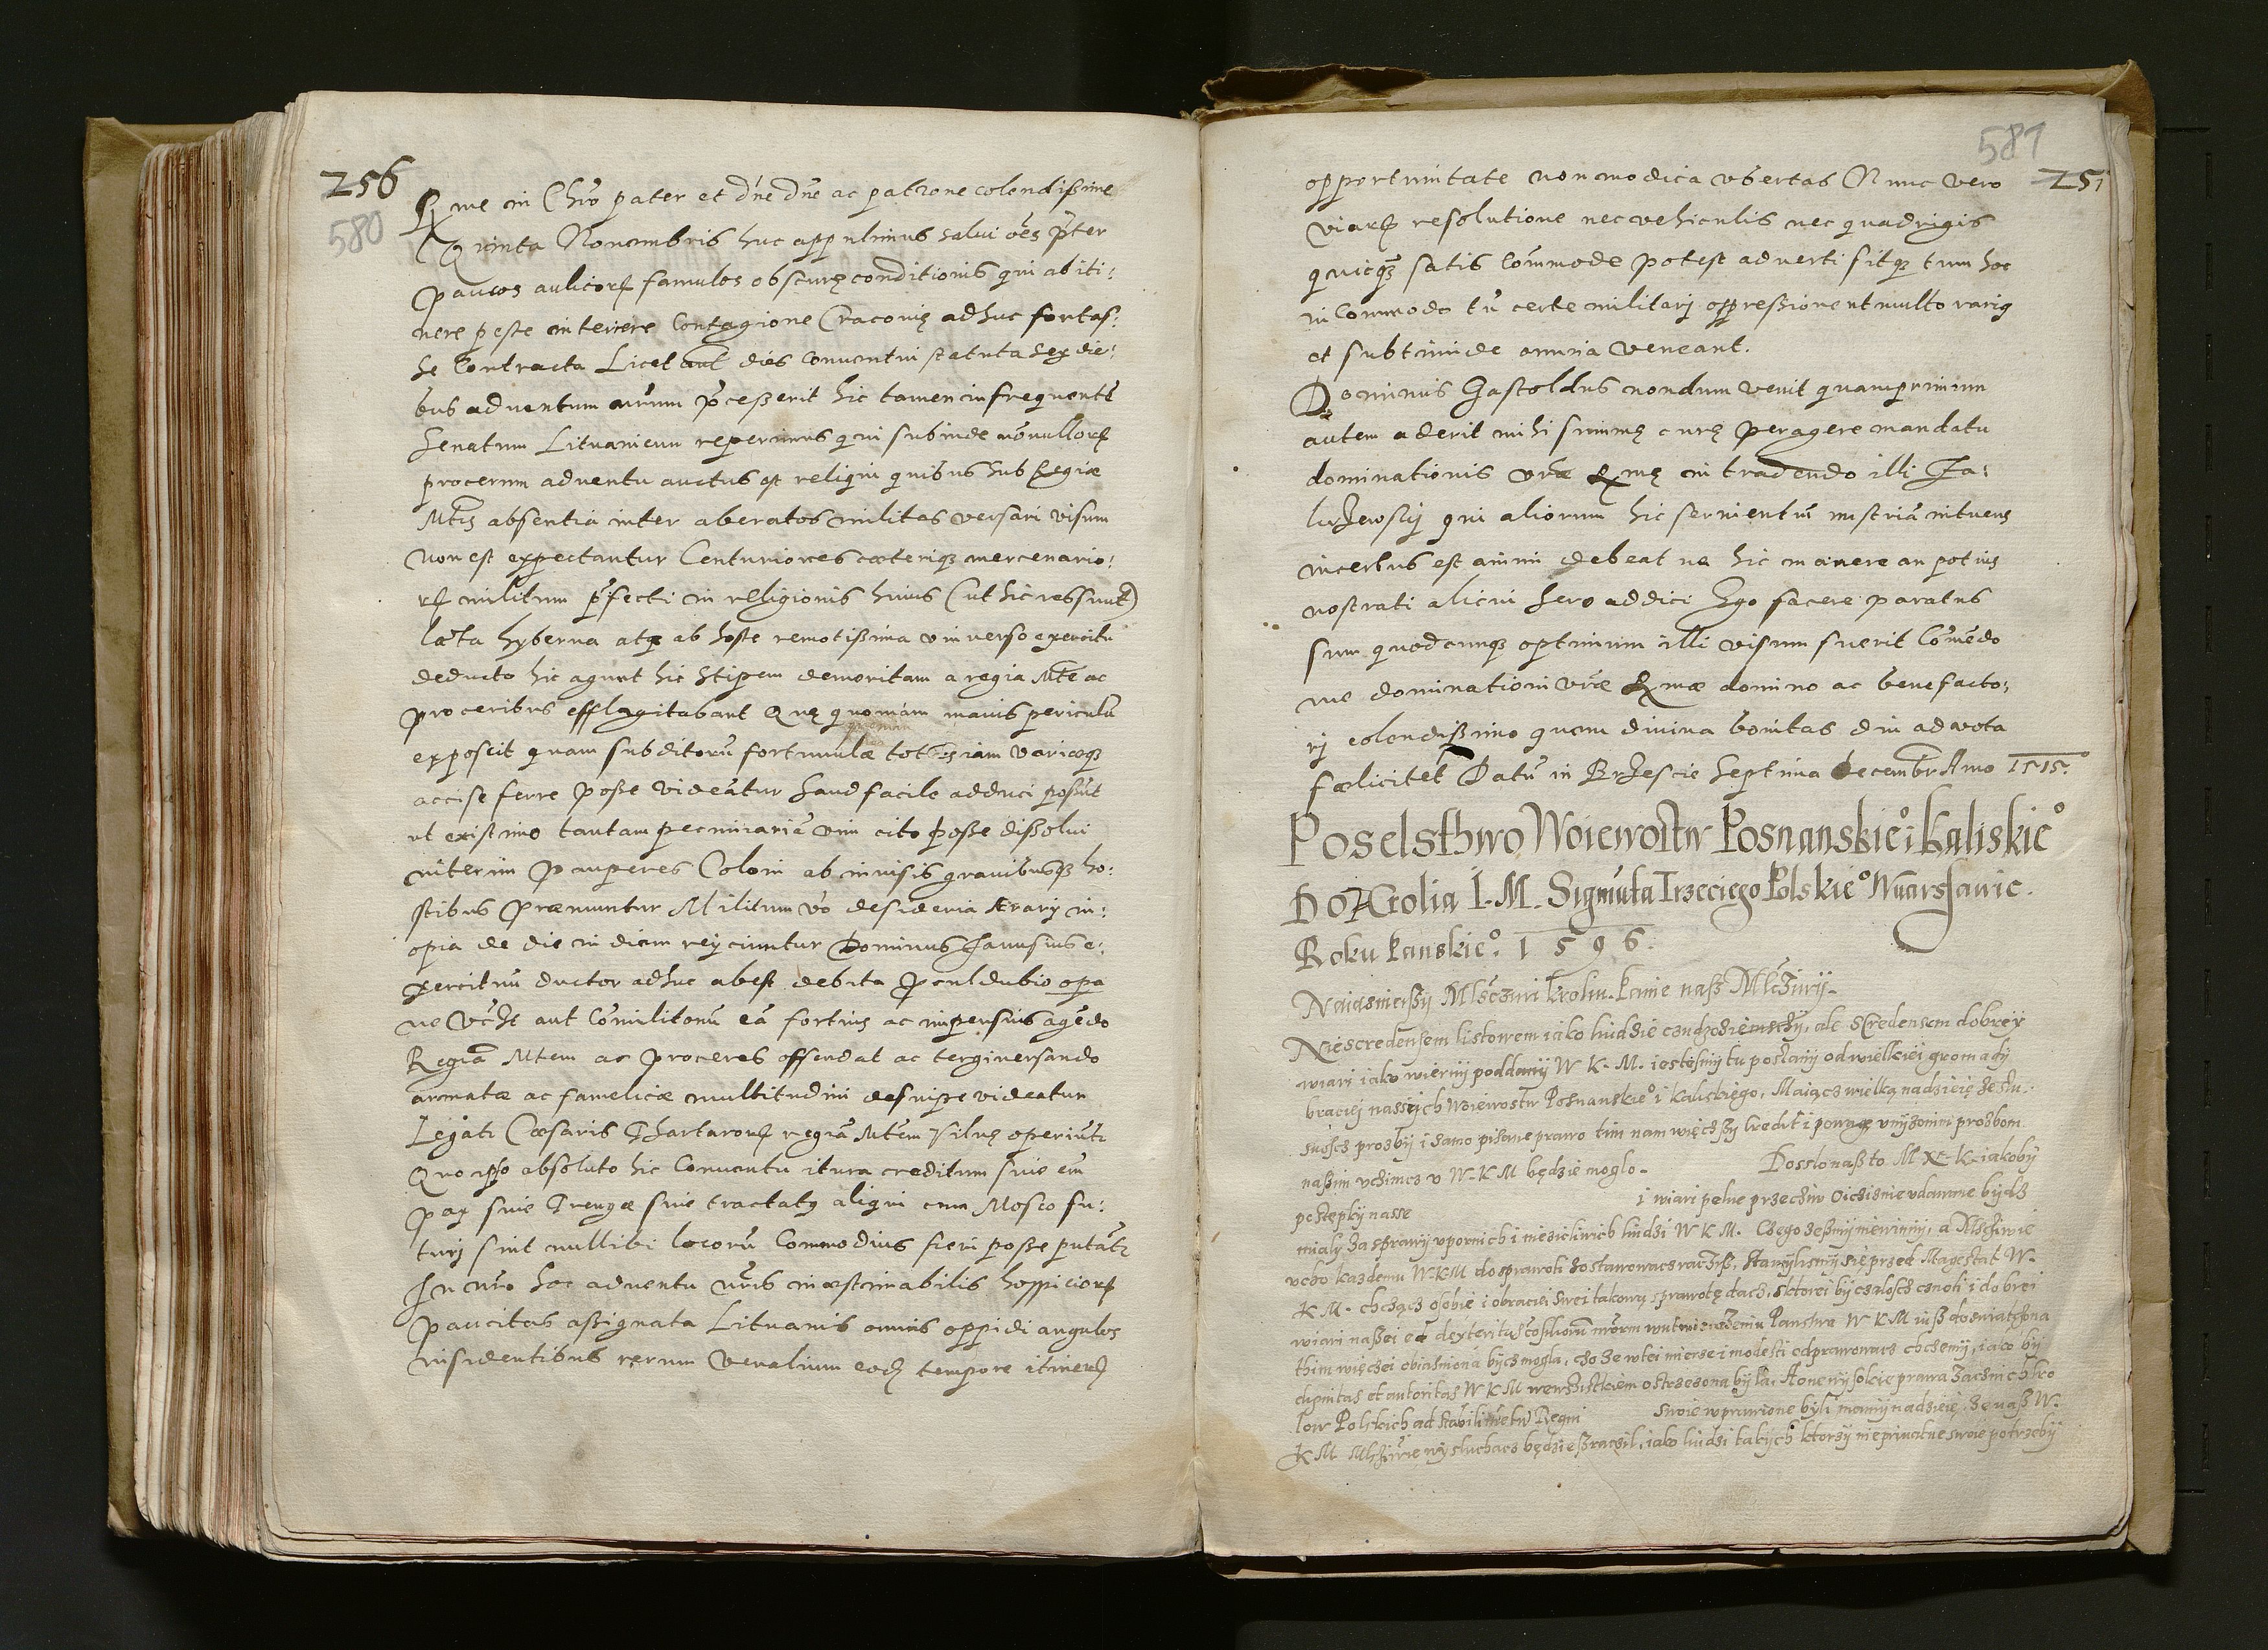 256
580
Rme in Chro pater et dne dne ac patrone colendißime
Quinta Nouembris huc appulimus salui oēs pter
paucos aulicorꝝ famulos obscurę conditionis qui ab iti:
nere peste interiere Contagione Cracouię adhuc fortaſ:
se Contracta Licet aut dies Conuentui statuta sex die:
bus aduentum nrum pceßerit hic tamen infrequentē
Senatum Lituanicum reperimus qui subinde nonullorꝝ
procerum aduentu auctus est reliqui quibus sub Regiæ
Mtis absentia inter aberatos milites versari visum
non est expectantur Centuriones cæteriqꝫ mercenario:
rꝝ militum pfecti in religionis huius (ut hic res sunt)
lata hyberna atqꝫ ab hoste remotißima vniuerso exercitu
deducto hic agunt hic Stipem demeritam a regia Mte ac
proceribus efflagitabant Quę quoniam maius periculū
exposcit quam subditorū fortunulæ toties iam variæqꝫ
accisę ferre poße videātur haud facile adduci poßūt
ut existimo tantam pecuniariā vim cito poße dißolui
interim pauperes Coloni ab inuisis grauibusqꝫ ho:
stibus præmuntur Militum vo desideria Ærarij in:
opia de die in diem reijciuntur Dominus Janusius e:
xercitūū ductor adhuc abest debita proculdubio opa
ne vel aut Comilitonū eā fortius ac impensius agēdo
Regiā Mtem ac proceres offendat ac tergiuersando
armatæ ac famelicæ multitudini desnipe videatur
Legati Cæsaris Thartarorꝝ regiā Mtem Vilnę operiūt
Quo ipso absoluto hic Conuentu itura creditum siue eīn
pax siue Treugæ siue tractatꝰ aliqui cum Mosco fu:
turj sint nullibi locorū Commodius fieri poße putāt
In nro hoc aduentu nris inæstimabilis hospiciorꝝ
paucitas aßignata Lituanis omnis oppidi angulos
insidentibus rerum venalium eodē tempore itinerꝝ
581
257
opportunitate non modica vbertas Nunc vero
viarꝝ resolutione nec vehiculis nec quadrigis
quicqꝫ satis Commode potest aduerti fitqꝫ tum hoc
in Commodo tū certe militarj oppreßione ut multo rariꝰ
et subtimide omnia veneant.
Dominus Gastoldus nondum venit quamprimum
autem aderit mihi summę curę peragere mandatu
dominationis vræ Rmę in tradendo illi Ja:
lizewsky qui aliorum hic seruientiū mstriā intuens
incertus est animi debeat ne hic manere an potius
nostrati alicui hero addici Ego facere paratus
sum quodcunqꝫ optimum illi visum fuerit Comēdo
me dominationi vræ Rmæ domino ac benefacto:
rj colendißimo quem diuina bonitas diu ad vota
fœlicitet Datū in Brzescie Septima decembr Anno 1515.
Poselsthwo Woiewostw Posnanskie° i Kaliskie°
Do Crolia I. M. Sigmūta Trzeciego Polskie° Wuarssawie.
Roku Panskie°. 1596.
Naiasnießy Mlsczwi Krolu. Panie naß Mlsziwy.
Niescredensem listowem iako liudzie czudzoziemschy, ale Scredensem dobrey
wiari iako wierny poddany W K. M. iestesmy tu posłany od wielkiei gromady
braciej nassych Woiewostw Posnanskie° i Kaliskiego, Maiącz wielką nadzieię ze słu:
snoscz prozby i samo pisane prawo tim nam więczßy kredit i powagę vnyżonim prozbom
naßim vczinicz v W. K M będzie moglo. Doszlo naß to M K. iakoby
postępky nasse i wiari pelne przecziw Oiczisnie vdawane bydz
mialy za sprawy vpornich i niezicliwich liudzi W K M. Czego zeßmy niewinny, a Msziwie
vcho kazdemu W. K M do sprawoti zostawowacz raczyß. Stawylismy się przed Magestat W.
K M. chcząch osobie i obraciei swei takową sprawotę dacz, sktorei by czalosch cznoti i dobrei
wiari naßei et dexteritas consiliorū nrorm wutwierdzeniu Panstwa W K M iuß doswiatczona
thim więczei obiasniona bycz mogla, cho ze wtei mierze i modesti odprawowacz chczemy, iako by
dignitas et autoritas W K M wewszistkiem ostrzezona była. A one wysokie prawa zacznich Kro
low Polskich ad stabilimētu Regni swoie wprawione byli mamy nadzieię, ze naß W.
K M Mlsziwie wysluchacz będzieß raczil, iako liudzi takych ktorzy nie priuatne swoie potrzeby